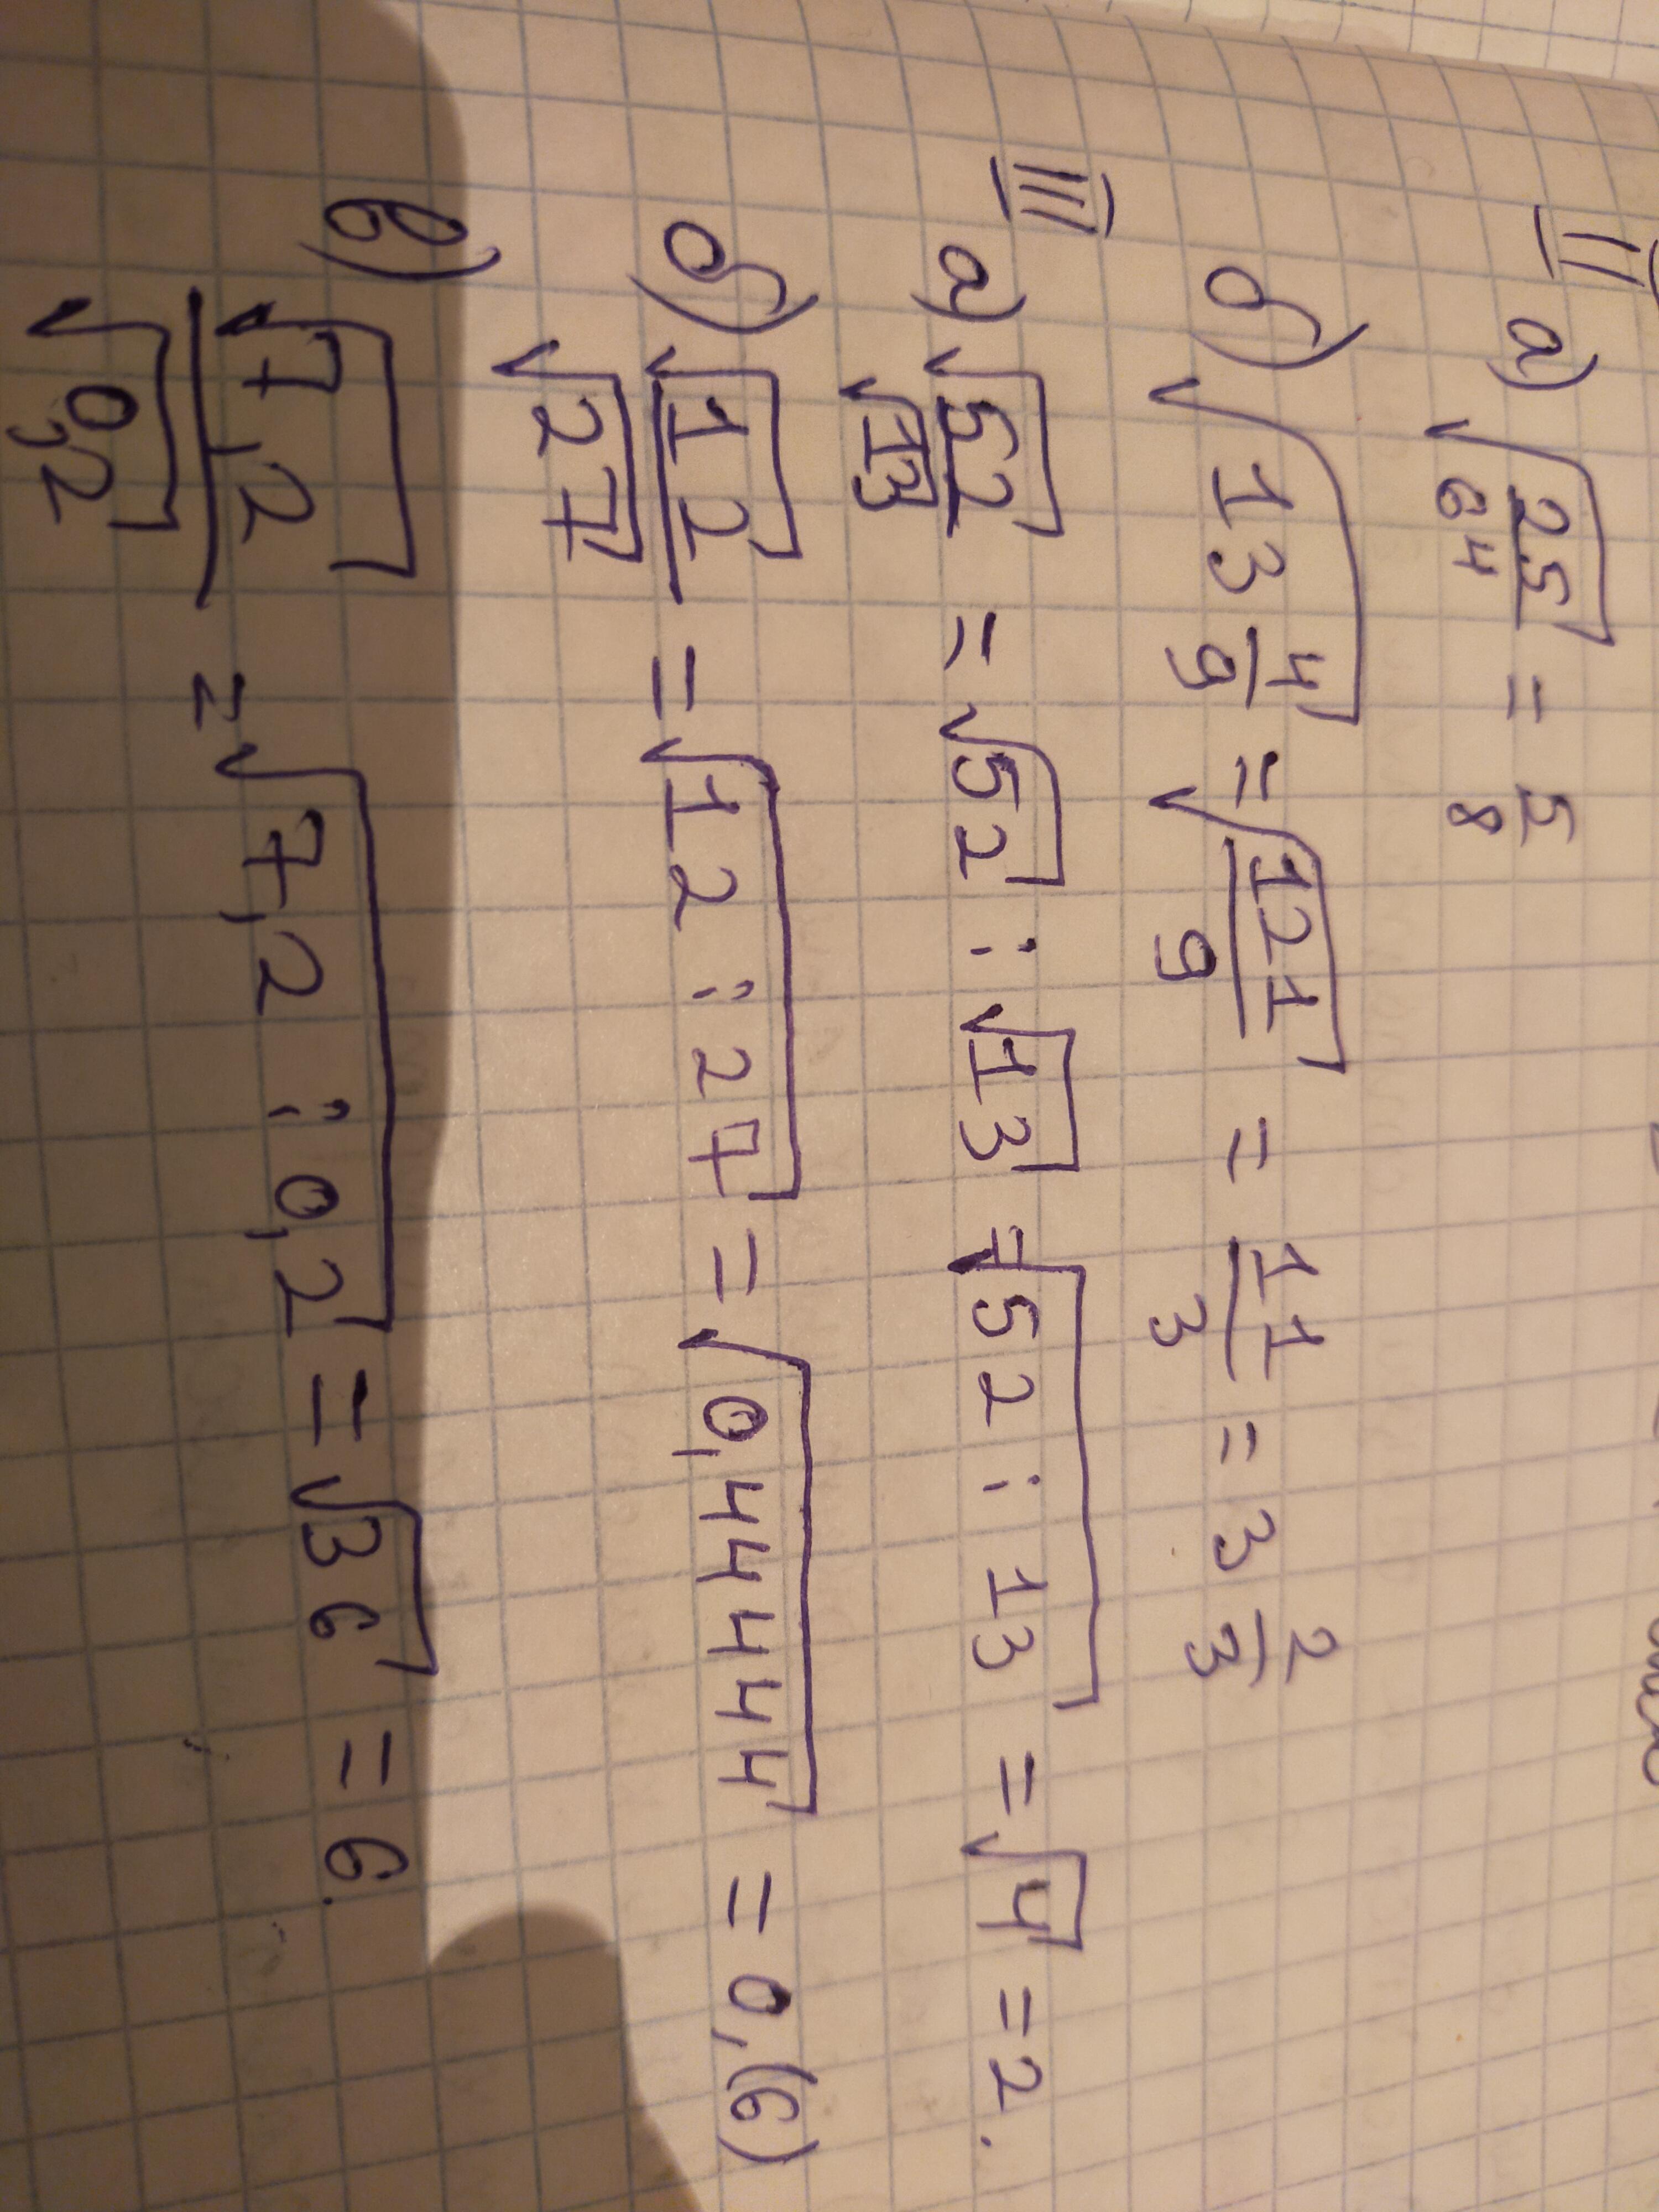 II а) √(25/64) = 5/8
б) √(13 4/9) = √(121/9) = 11/3 = 3 2/3
III а) √52/√13 = √52 : √13 = √(52 : 13) = √4 = 2.
б) √12/√27 = √(12 : 27) = √(0,44444) = 0,(6)
в) √7,2/√0,2 = √(7,2 : 0,2) = √36 = 6.